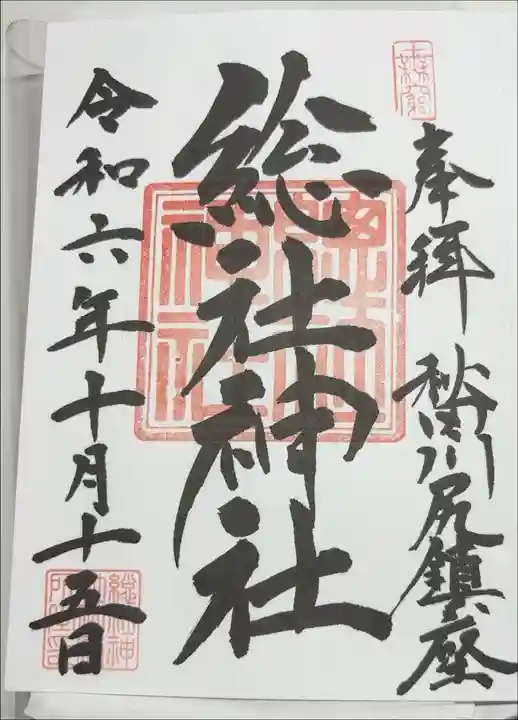 奉拝 秋田川尻鎮座
総社神社
令和六年十月十五日